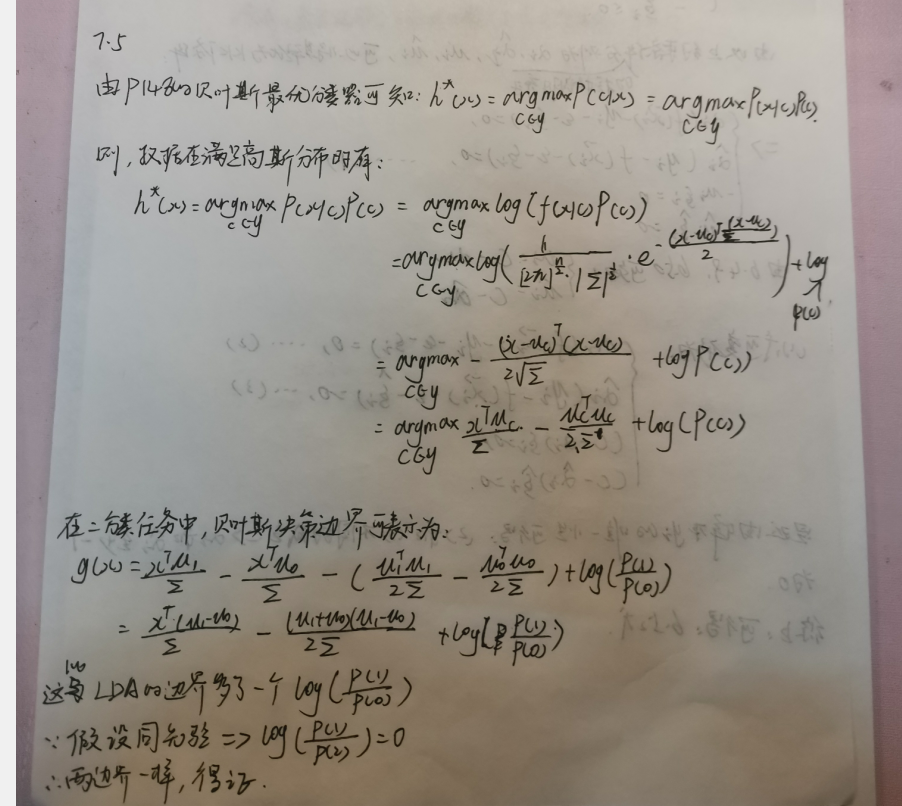 7.5
由P148的贝叶斯最优分类器可知: h*(x) = argmax_{c∈y} P(c|x) = argmax_{c∈y} P(x|c)P(c).
则,数据在满足高斯分布时有:
h*(x) = argmax_{c∈y} P(x|c)P(c) = argmax_{c∈y} log(f(x|c)P(c))
= argmax_{c∈y} log( 1/([2π]^{n/2}·|Σ|^{1/2}) · e^{-(x-u_c)^T Σ (x-u_c)/2} ) + log P(c)
= argmax_{c∈y} - (x-u_c)^T(x-u_c)/(2√Σ) + log P(c))
= argmax_{c∈y} x^T u_c/Σ - u_c^T u_c/2Σ + log(P(c))
在二分类任务中,贝叶斯决策边界可表示为:
g(x) = x^T u_1/Σ - x^T u_0/Σ - (u_1^T u_1/2Σ - u_0^T u_0/2Σ) + log(P(1)/P(0))
= x^T·(u_1-u_0)/Σ - (u_1+u_0)(u_1-u_0)/2Σ + log(P(1)/P(0))
这比LDA的边界多了一个 log(P(1)/P(0))
∵假设同先验 => log(P(1)/P(2)) = 0
∴两边界一样,得证.